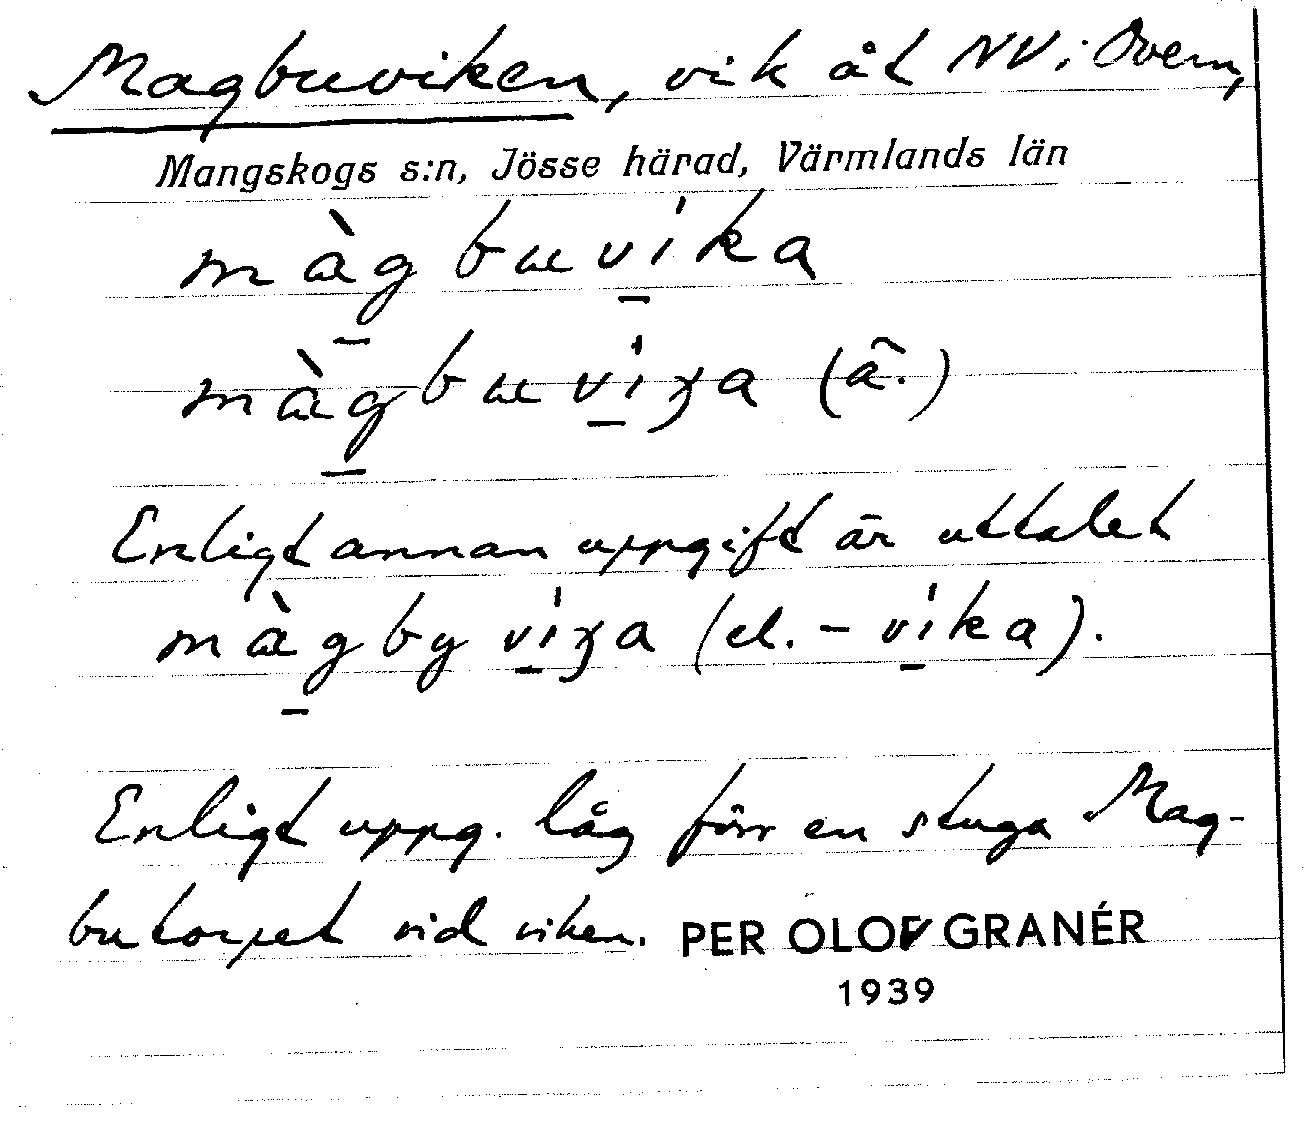 Magbuviken, vik åt NV i Övern,
Mangskogs s:n, Jösse härad, Värmlands län
màgbuvika
màgbuviʒa (ä.)
Enligt annan uppgift är uttalet
màgbyviʒa (el. -vika).
Enligt uppg. låg förr en stuga Mag-
butorpet vid viken.
PER OLOF GRANÉR
1939